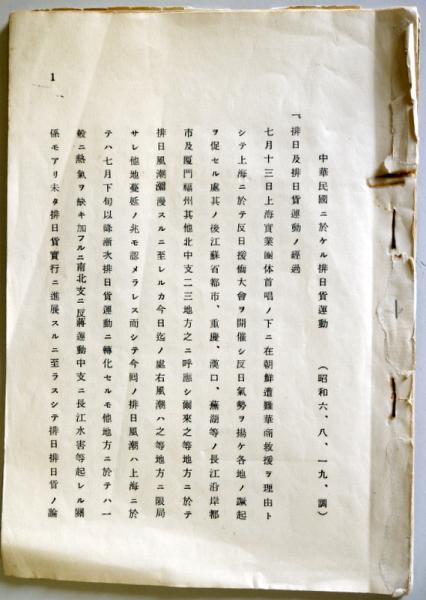 中華民國ニ於ケル排日貨運動　（昭和六、八、一九、調）
一、排日及排日貨運動ノ經過
七月十三日上海實業團体首唱ノ下ニ在朝鮮遭難華商救援ヲ理由ト
シテ上海ニ於テ反日援僑大會ヲ開催シ反日氣勢ヲ揚ケ各地ノ蹶起
ヲ促セル處其ノ後江蘇省都市、重慶、漢口、蕪湖等ノ長江沿岸都
市及厦門福州其他北中支二三地方之ニ呼應シ爾來之等地方ニ於テ
排日風潮瀰漫スルニ至レルカ今日迄ノ處右風潮ハ之等地方ニ限局
サレ他地蔓延ノ兆モ認メラレス而シテ今囘ノ排日風潮ハ上海ニ於
テハ七月下旬以降漸次排日貨運動ニ轉化セルモ他地方ニ於テハ一
般ニ熱氣ヲ缺キ加フルニ南北支ニ反蔣運動中支ニ長江水害等起レル關
係モアリ未タ排日貨實行ニ進展スルニ至ラスシテ排日排日貨ノ論
1